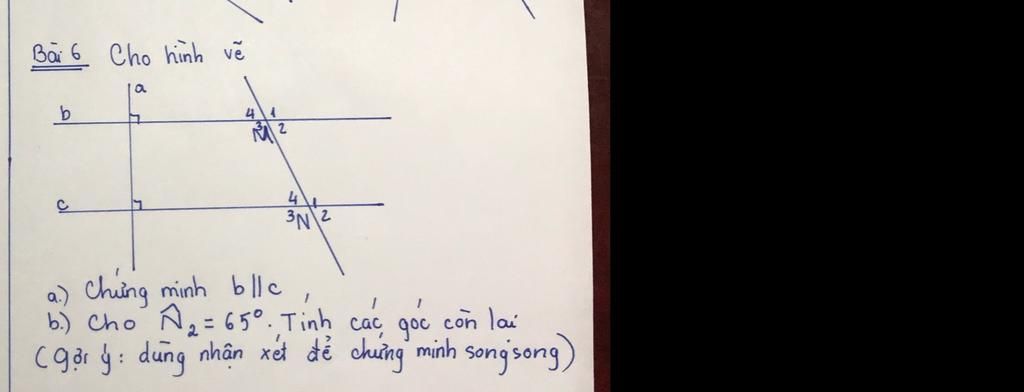 Bài 6 Cho hình vẽ
a
b
4 1
3 2
M
c
4 1
3 2
N
a.) Chứng minh b || c
b.) Cho N̂₂ = 65°. Tính các góc còn lại
(Gợi ý: dùng nhận xét để chứng minh song song)